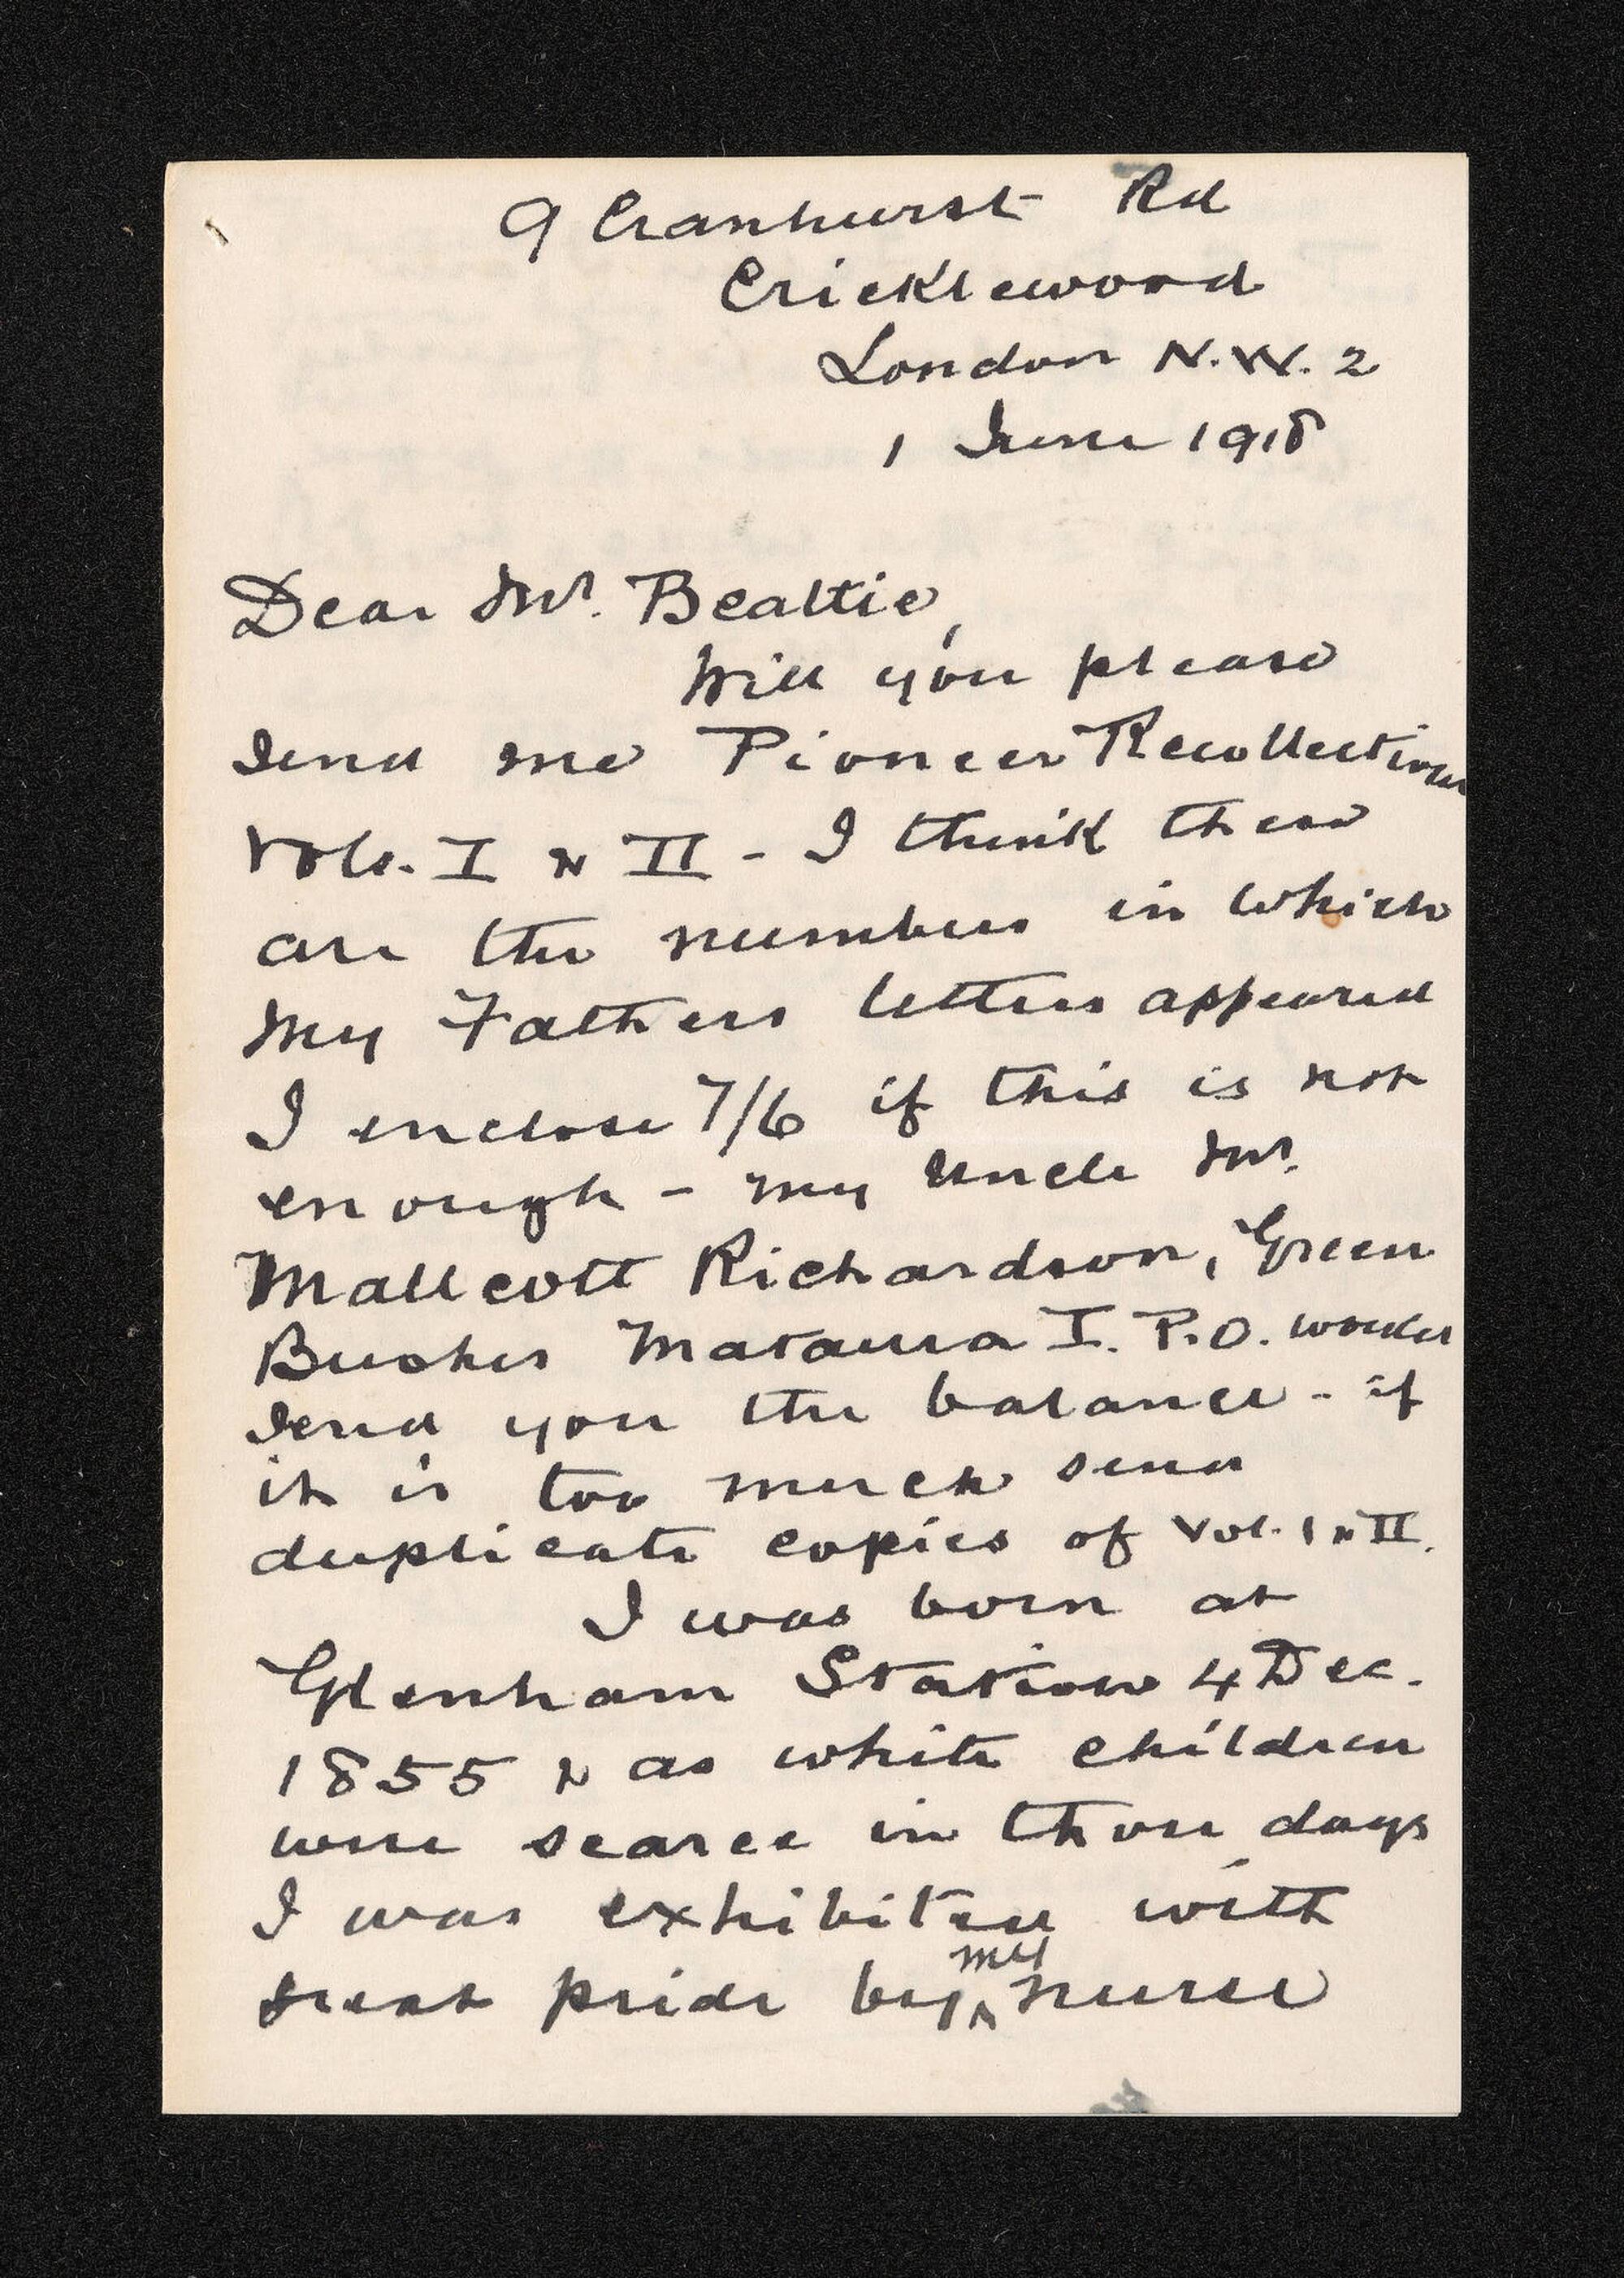 9 Cranhurst Rd
Cricklewood
London N.W. 2
1 June 1918
Dear Mr. Beattie,
Will you please
send me Pioneer Recollections
Vols. I & II - I think these
are the numbers in which
my Fathers letters appeared
I enclose 7/6 if this is not
enough - my Uncle Mr.
Mallcott Richardson, Green
Bushes Mataura I. P.O. would
send you the balance - if
it is too much send
duplicate copies of Vol. I & II.
I was born at
Glenham Station 4 Dec.
1855 & as white children
were scarce in those days
I was exhibited with
great pride by my nurse